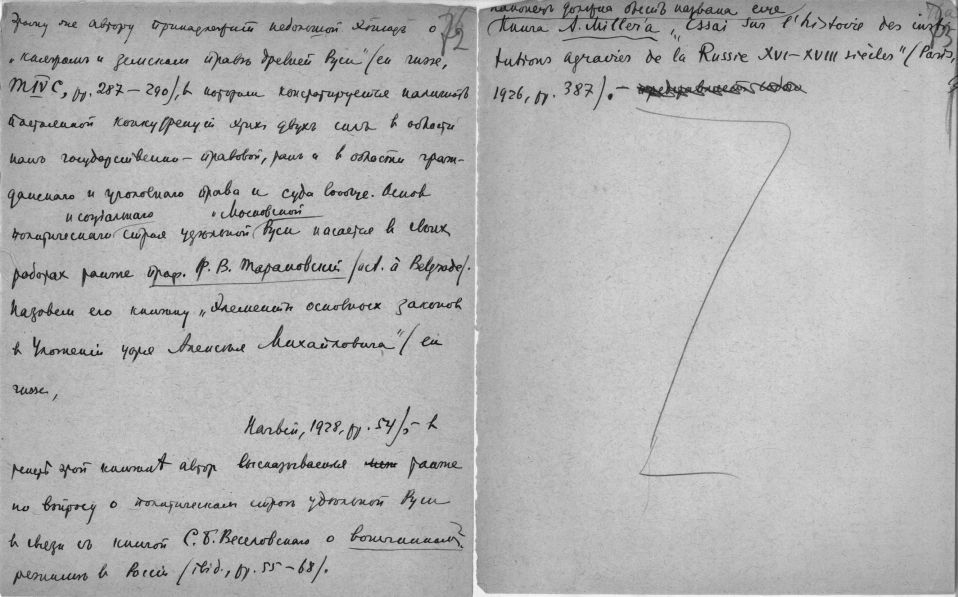 Этому же автору принадлежит небольшой этюдъ о
„княжомъ и земскомъ правѣ древней Руси" /en russe,
MIVC, pp. 287–290/, въ которомъ констатируется наличность
постоянной конкуренціи этихъ двухъ силъ в области
какъ государственно-правовой, такъ и в области граж-
данскаго и уголовнаго права и суда вообще.
политическаго и соціальнаго строя удѣльной и Московской Руси касается в своих
работах также проф. Ѳ. В. Тарановскій /act. à Belgrade/.
Назовем его книжку „Элементы основныхъ законов
в Уложеніи царя Алексѣя Михайловича" / en
russe,
1928, pp. 54/, – в
этой книжкѣ автор высказывается также
по вопросу о политическом строѣ удѣльной Руси
в связи съ книгой С. Б. Веселовскаго о вотчинномъ
режимѣ в Россіи / ibid., pp. 55–68/.
72
наконецъ должна быть названа еще
книга A. Miller'a „Essai sur l'histoire des insti-
tutions agraires de la Russie XVI–XVIII siècles" / Paris,
1926, pp. 387/. –
73